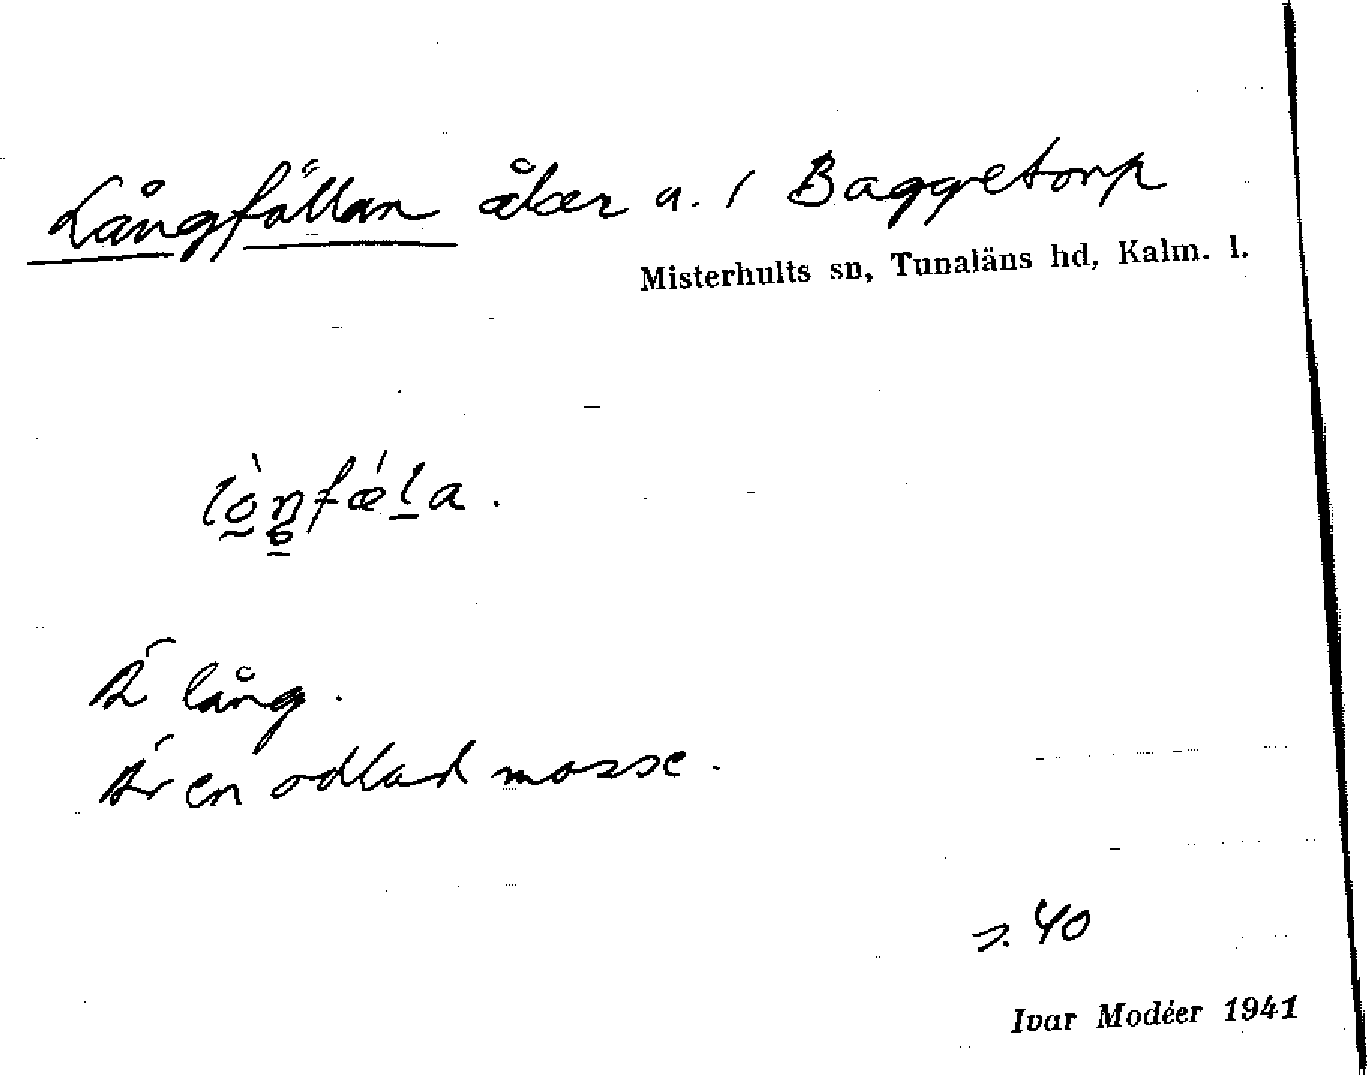 Långfällan åker a. / Baggetorp
Misterhults sn, Tunaläns hd, Kalm. l.
Är lång.
Är en odlad mosse.
s. 40
Ivar Modéer 1941